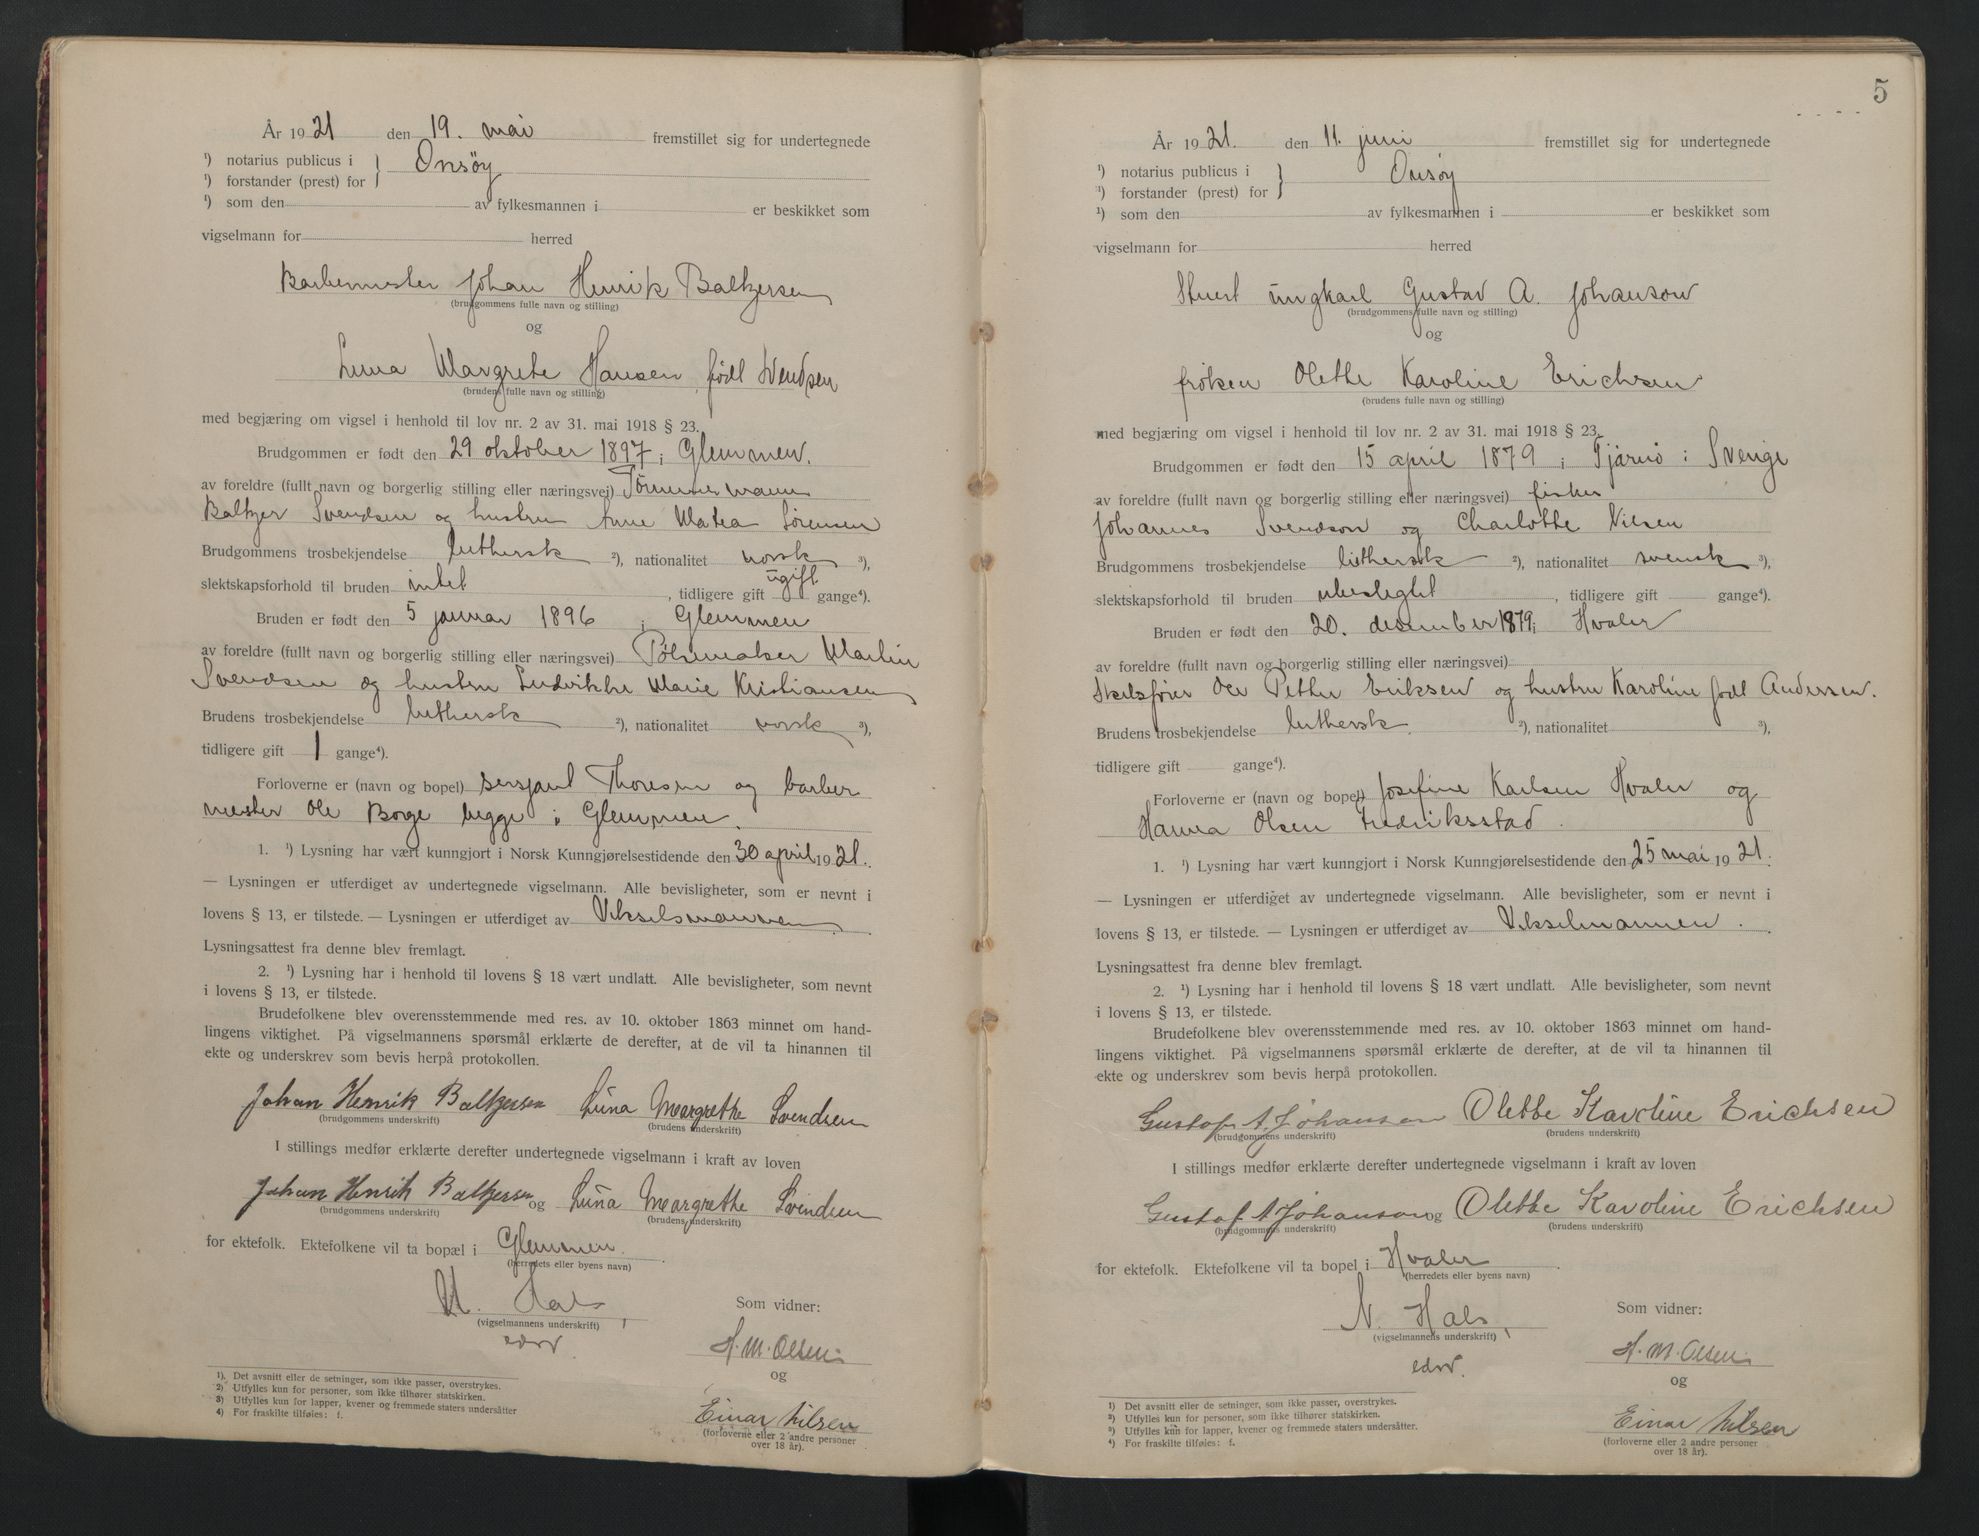 År 1921 den 19. mai fremstillet sig for undertegnede
¹) notarius publicus i } Onsöy
¹) forstander (prest) for
¹) som den av fylkesmannen i er beskikket som
vigselmann for herred
Barbermester Johan Henrik Baltzersen
(brudgommens fulle navn og stilling)
og
Luna Margrete Hansen, født Svendsen
(brudens fulle navn og stilling)
med begjæring om vigsel i henhold til lov nr. 2 av 31. mai 1918 § 23.
Brudgommen er født den 29 oktober 1897 i Glemmen.
av foreldre (fullt navn og borgerlig stilling eller næringsvei) Tömmermann
Baltzer Svendsen og hustru Anne Matea Sørensen
Brudgommens trosbekjendelse luthersk ²), nationalitet norsk ³),
slektskapsforhold til bruden intet, tidligere gift ugift gange⁴).
Bruden er født den 5 januar 1896 i Glemmen
av foreldre (fullt navn og borgerlig stilling eller næringsvei) Pölsemaker Martin
Svendsen og hustru Ludvikke Marie Kristiansen
Brudens trosbekjendelse luthersk ²), nationalitet norsk ³),
tidligere gift 1 gange⁴).
Forloverne er (navn og bopel) sersjant Thoresen og barber
mester Ole Borge begge i Glemmen.
1. ¹) Lysning har vært kunngjort i Norsk Kunngjørelsestidende den 30 april 1921.
— Lysningen er utferdiget av undertegnede vigselmann. Alle bevisligheter, som er nevnt i
lovens § 13, er tilstede. — Lysningen er utferdiget av Vikselsmannen.
Lysningsattest fra denne blev fremlagt.
2. ¹) Lysning har i henhold til lovens § 18 vært undlatt. Alle bevisligheter, som nevnt
i lovens § 13, er tilstede.
Brudefolkene blev overensstemmende med res. av 10. oktober 1863 minnet om hand-
lingens viktighet. På vigselmannens spørsmål erklærte de derefter, at de vil ta hinannen til
ekte og underskrev som bevis herpå protokollen.
Johan Henrik Baltzersen Luna Margrethe Svendsen
(brudgommens underskrift) (brudens underskrift)
I stillings medfør erklærte derefter undertegnede vigselmann i kraft av loven
Johan Henrik Baltzersen og Luna Margrethe Svendsen
(brudgommens underskrift) (brudens underskrift)
for ektefolk. Ektefolkene vil ta bopæl i Glemmen.
(herredets eller byens navn)
N. Hals,
(vigselmannens underskrift)
edsv.
Som vidner:
H. M. Olsen
og
Einar Nilsen
(forloverne eller 2 andre personer
over 18 år).
1) Det avsnitt eller de setninger, som ikke passer, overstrykes.
2) Utfylles kun for personer, som ikke tilhører statskirken.
3) Utfylles kun for lapper, kvener og fremmede staters undersåtter
4) For fraskilte tilføies: f.
5
År 1921. den 11. juni fremstillet sig for undertegnede
¹) notarius publicus i } Onsöy
¹) forstander (prest) for
¹) som den av fylkesmannen i er beskikket som
vigselmann for herred
Stuert ungkarl Gustav A. Johanson
(brudgommens fulle navn og stilling)
og
fröken Olette Karoline Erichsen
(brudens fulle navn og stilling)
med begjæring om vigsel i henhold til lov nr. 2 av 31. mai 1918 § 23.
Brudgommen er født den 15 april 1879 i Tjärnö i Sverige
av foreldre (fullt navn og borgerlig stilling eller næringsvei) fisker
Johannes Svendson og Charlotte Nilsen
Brudgommens trosbekjendelse luthersk ²), nationalitet svensk ³),
slektskapsforhold til bruden ubeslegtet, tidligere gift gange⁴).
Bruden er født den 20. desember 1879 i Hvaler
av foreldre (fullt navn og borgerlig stilling eller næringsvei)
Skibsfører Ole Petter Eriksen og hustru Karoline født Andersen.
Brudens trosbekjendelse luthersk. ²), nationalitet ³),
tidligere gift gange⁴).
Forloverne er (navn og bopel) Josefine Karlsen Hvaler og
Hanna Olsen Fredriksstad.
1. ¹) Lysning har vært kunngjort i Norsk Kunngjørelsestidende den 25 mai 1921.
— Lysningen er utferdiget av undertegnede vigselmann. Alle bevisligheter, som er nevnt i
lovens § 13, er tilstede. — Lysningen er utferdiget av Vikselmannen.
Lysningsattest fra denne blev fremlagt.
2. ¹) Lysning har i henhold til lovens § 18 vært undlatt. Alle bevisligheter, som nevnt
i lovens § 13, er tilstede.
Brudefolkene blev overensstemmende med res. av 10. oktober 1863 minnet om hand-
lingens viktighet. På vigselmannens spørsmål erklærte de derefter, at de vil ta hinannen til
ekte og underskrev som bevis herpå protokollen.
Gustaf A. Johanson Olette Karoline Erichsen
(brudgommens underskrift) (brudens underskrift)
I stillings medfør erklærte derefter undertegnede vigselmann i kraft av loven
Gustaf A Johanson og Olette Karoline Erichsen
(brudgommens underskrift) (brudens underskrift)
for ektefolk. Ektefolkene vil ta bopel i Hvaler.
(herredets eller byens navn)
N. Hals,
(vigselmannens underskrift)
edsv.
Som vidner:
H. M. Olsen
og
Einar Nilsen
(forloverne eller 2 andre personer
over 18 år).
¹) Det avsnitt eller de setninger, som ikke passer, overstrykes.
²) Utfylles kun for personer, som ikke tilhører statskirken.
³) Utfylles kun for lapper, kvener og fremmede staters undersåtter.
⁴) For fraskilte tilføies: f.